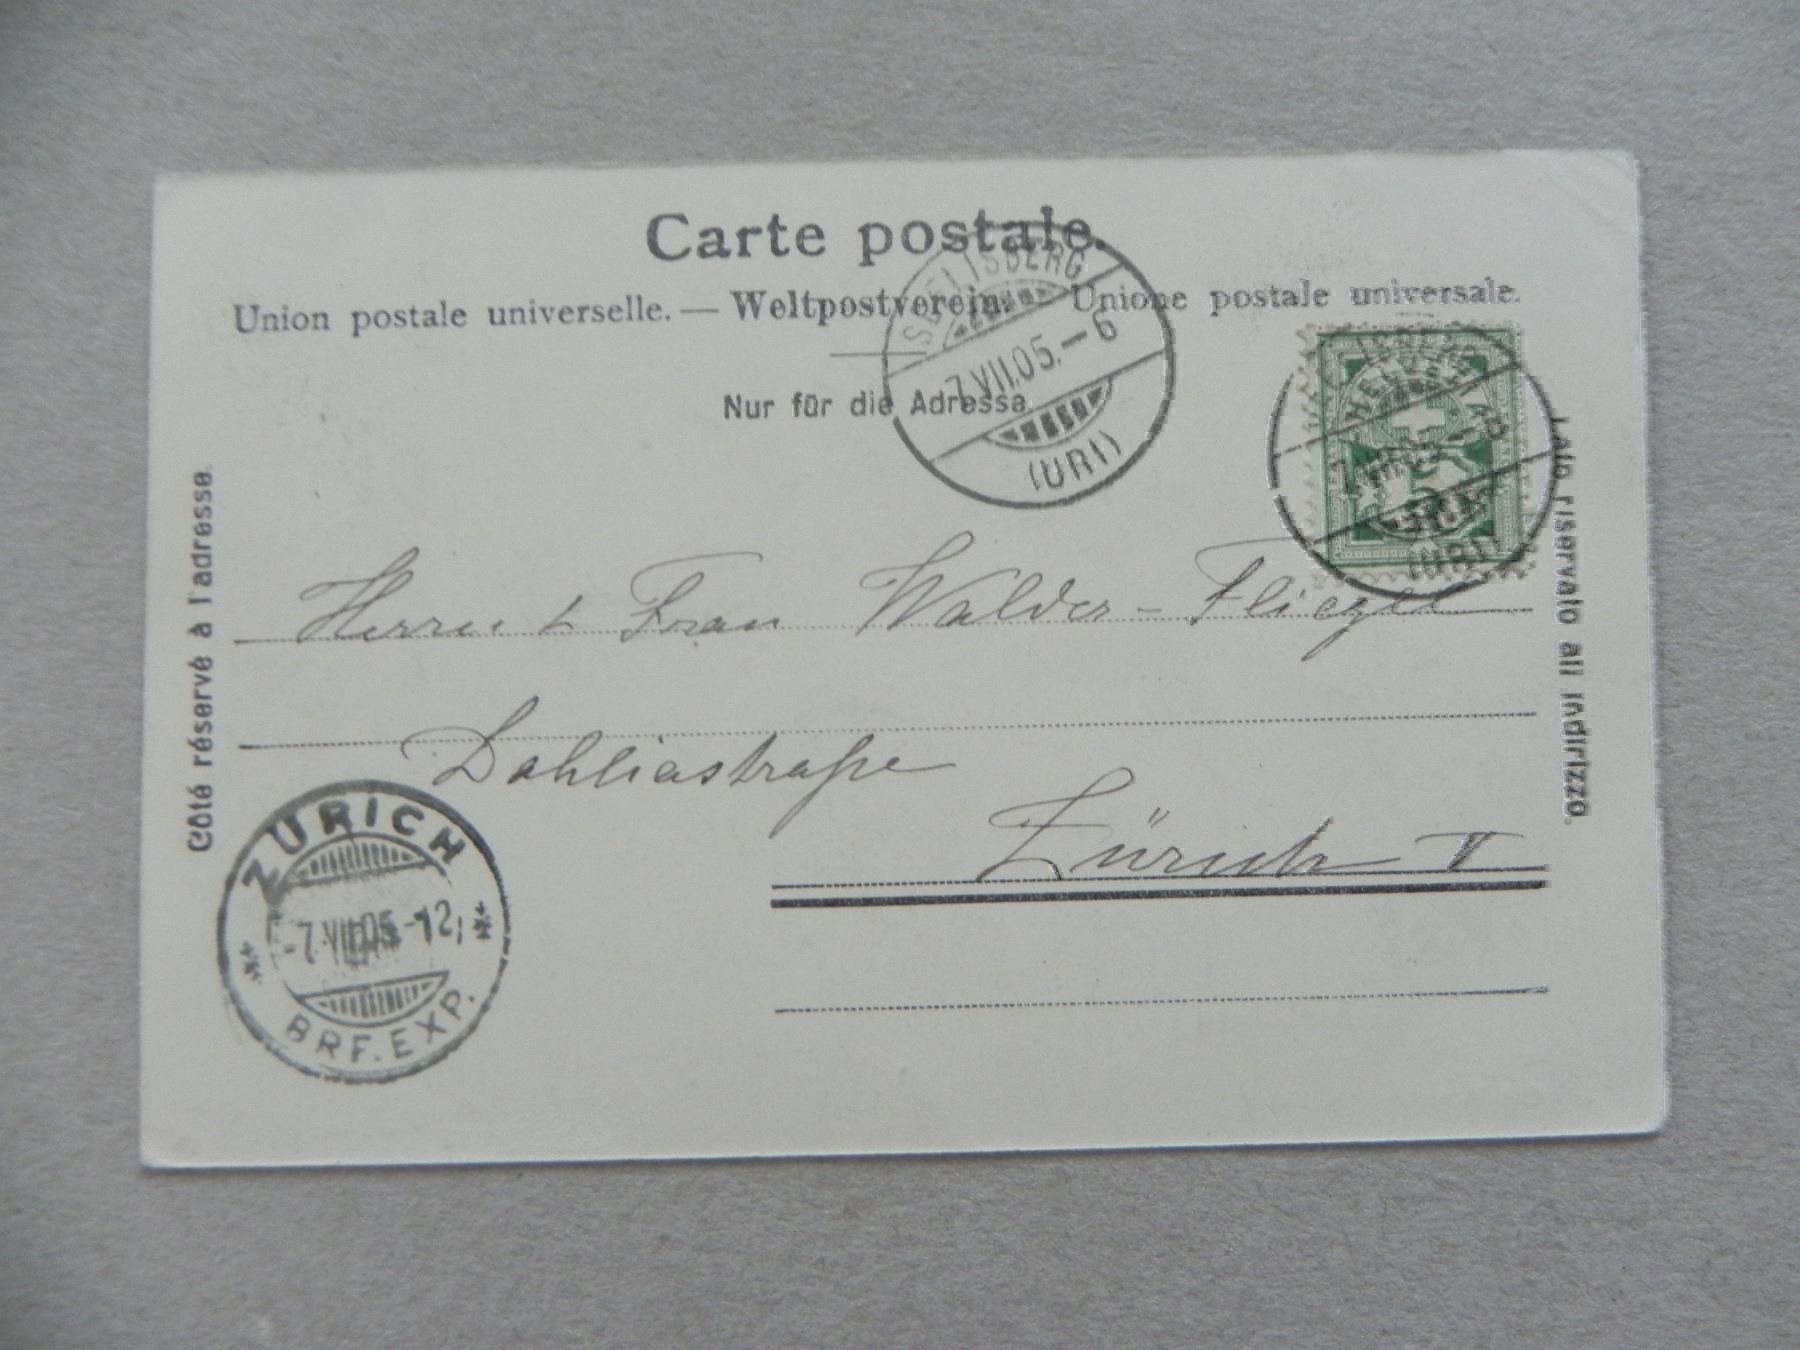 Carte postale.
Union postale universelle. — Weltpostverein. — Unione postale universale.
Nur für die Adresse.
SEELISBERG
7.VII.05.–6
(URI)
HELVETIA
(URI)
Côté réservé à l'adresse.
Lato riservato all indirizzo.
Herrn & Frau Walder-Fliegel
Dahliastraße
Zürich V
ZÜRICH
-7.VII.05.-12
BRF.EXP.